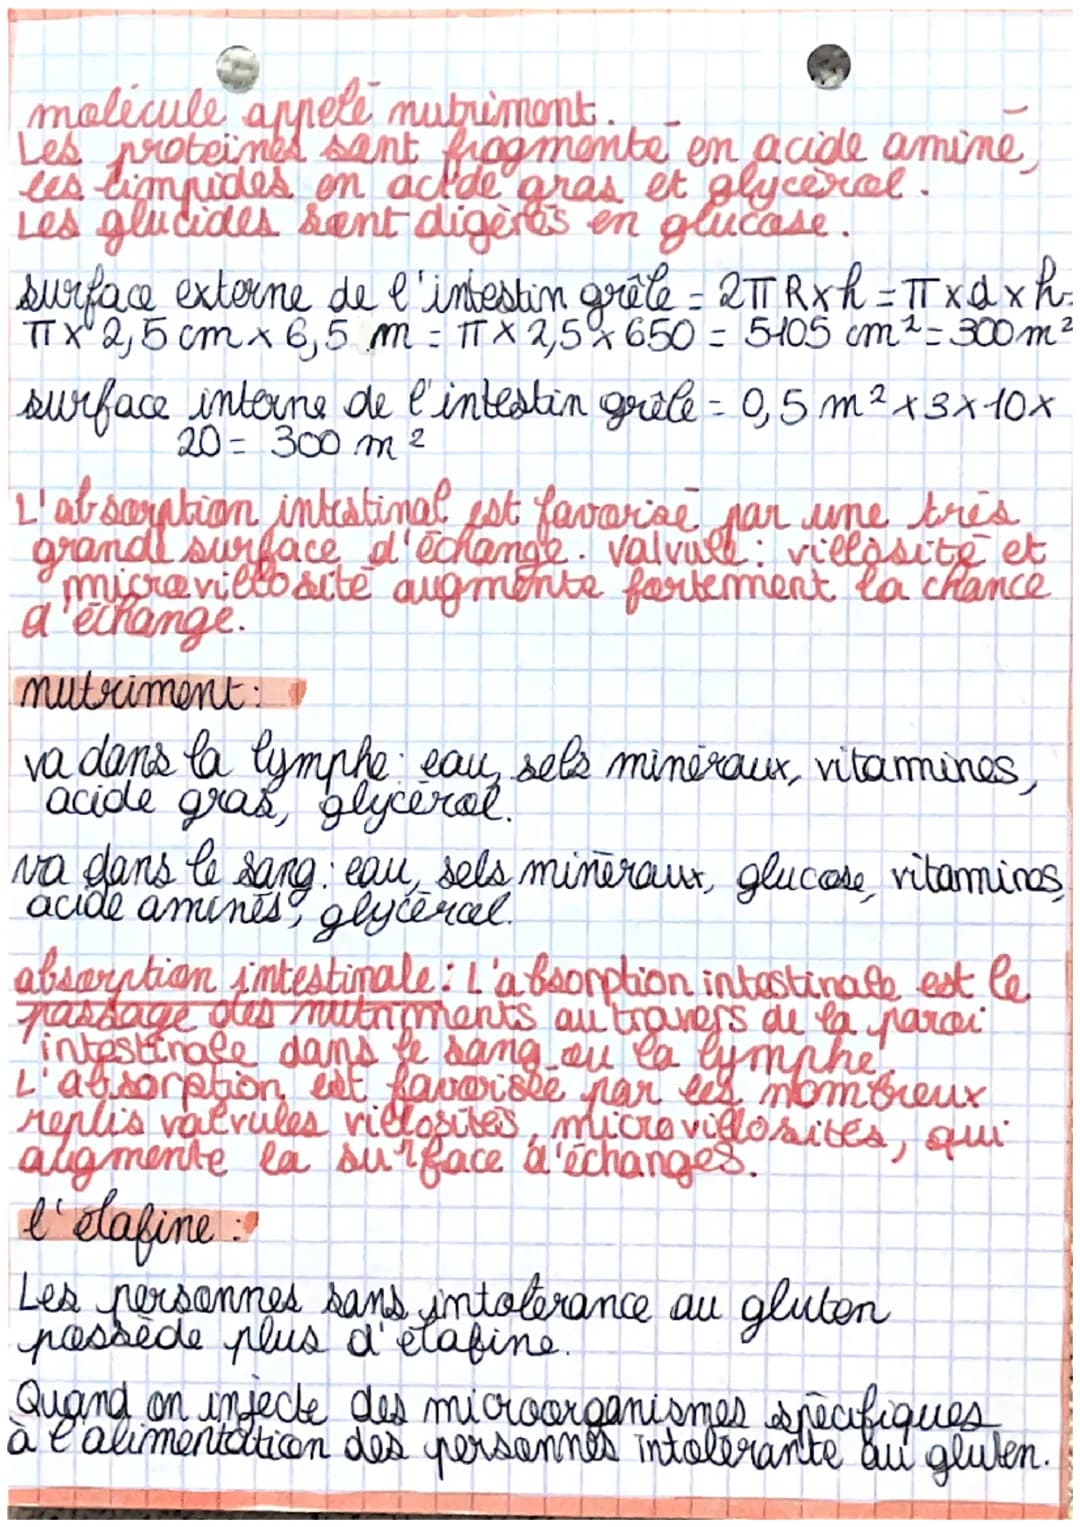 molécule appelé nutriment.
Les protéines sont fragmenté en acide aminé,
les limpides en acide gras et glycérol.
Les glucides sont digérés en glucose.
surface externe de l'intestin grêle = 2π R x h = π x d x h =
π x 2,5 cm x 6,5 m = π x 2,5 x 650 = 5105 cm² = 300 m²
surface interne de l'intestin grêle = 0,5 m² x 3 x 10 x
20 = 300 m²
L'absorption intestinal est favorisé par une très
grande surface d'échange. Valvule : villosité et
microvillosité augmente fortement la chance
d'échange.
nutriment :
va dans la lymphe : eau, sels minéraux, vitamines,
acide gras, glycérol.
va dans le sang : eau, sels minéraux, glucose, vitamines,
acide aminés, glycérol.
absorption intestinale : L'absorption intestinale est le
passage des nutriments au travers de la paroi
intestinale dans le sang ou la lymphe.
L'absorption est favorisée par les nombreux
replis valvules villosités, microvillosités, qui
augmente la surface d'échanges.
l'élafine :
Les personnes sans intolérance au gluten
possède plus d'élafine.
Quand on injecte des microorganismes spécifiques
à l'alimentation des personnes intolérante au gluten.